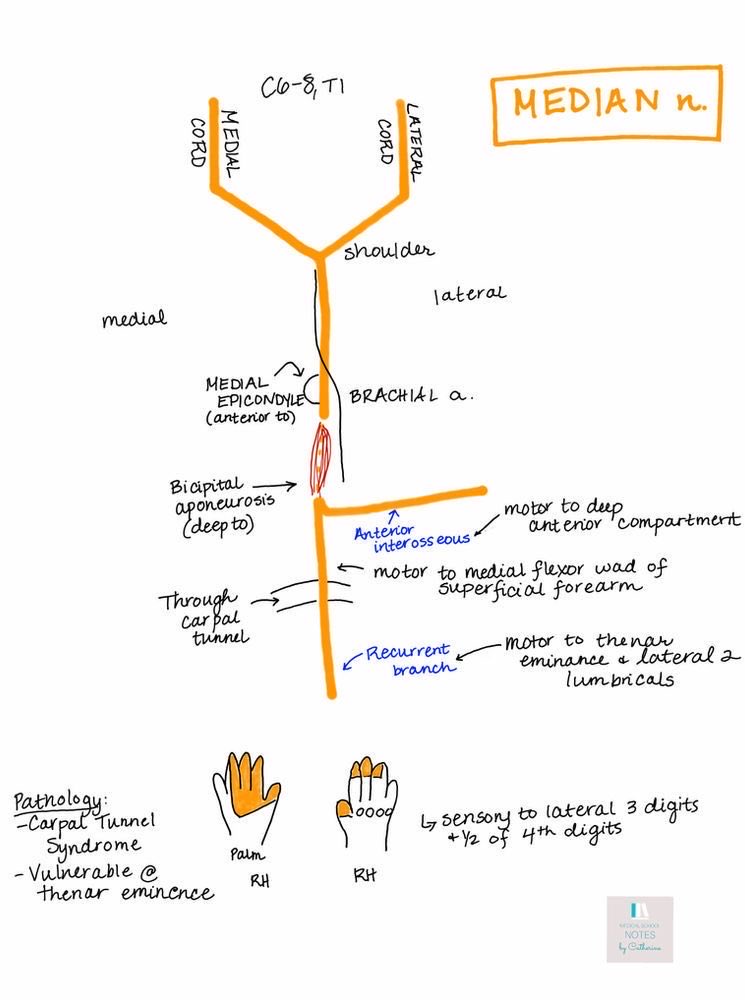 C6-8, T1
MEDIAN n.
MEDIAL
CORD
LATERAL
CORD
shoulder
medial
lateral
MEDIAL
EPICONDYLE
(anterior to)
BRACHIAL a.
Bicipital
aponeurosis
(deep to)
Anterior
interosseous
motor to deep
anterior compartment
motor to medial flexor wad of
superficial forearm
Through
carpal
tunnel
Recurrent
branch
motor to thenar
eminance & lateral 2
lumbricals
Pathology:
-Carpal Tunnel
Syndrome
- Vulnerable @
thenar eminence
Palm
RH
RH
↳ sensory to lateral 3 digits
+ 1/2 of 4th digits
MEDICAL SCHOOL
NOTES
by Catherine